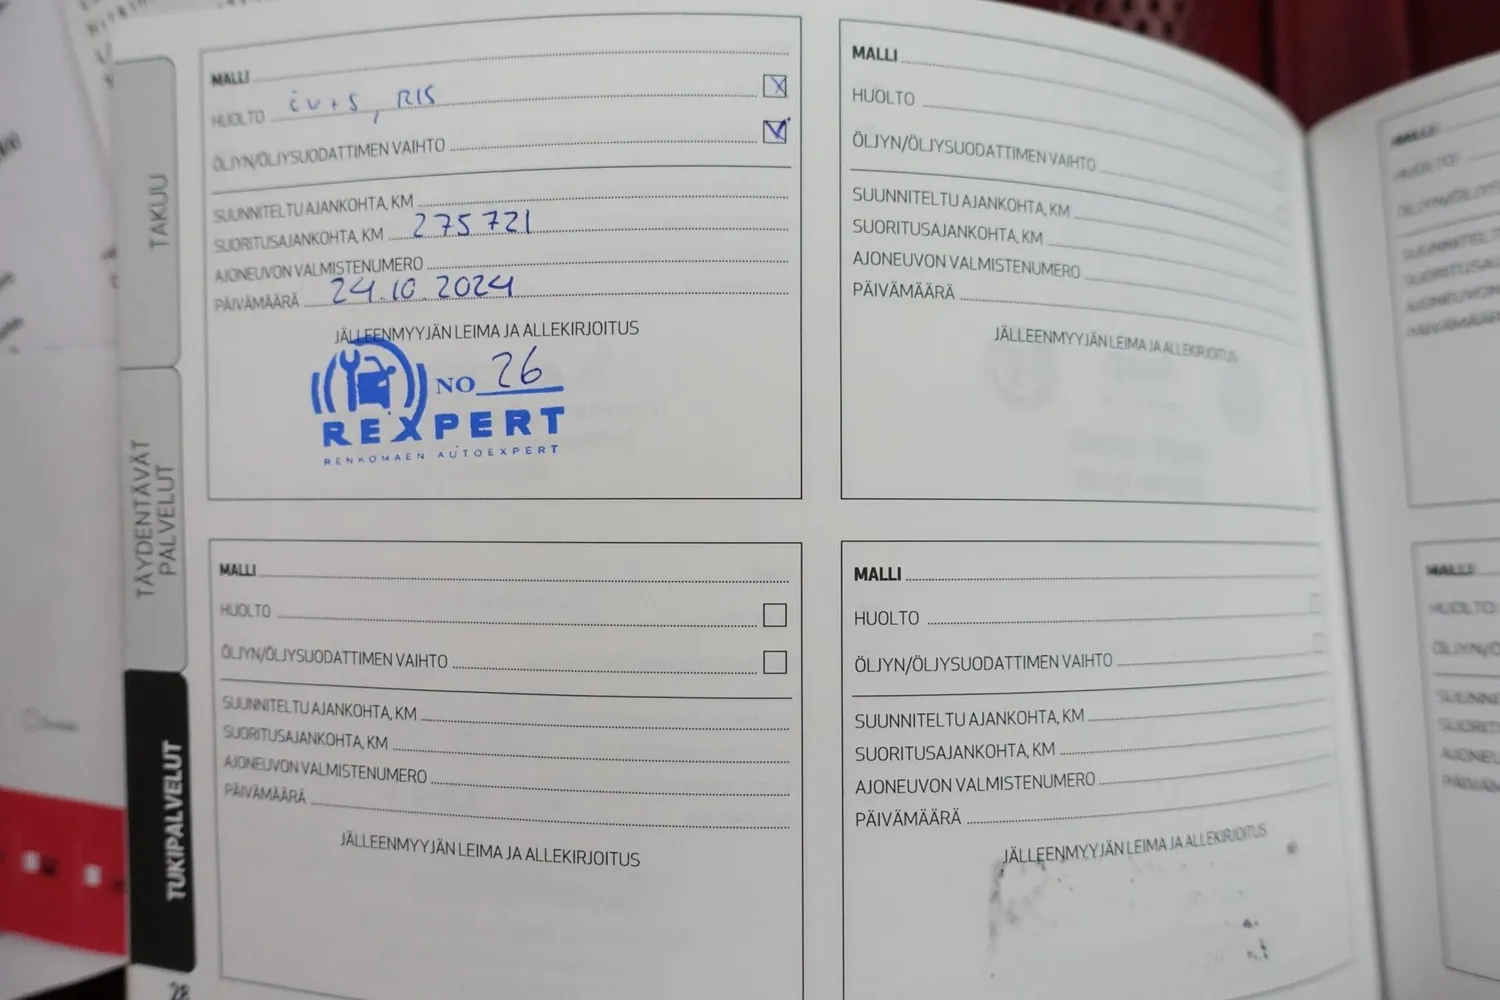 TAKUU
TÄYDENTÄVÄT
PALVELUT
TUKIPALVELUT
MALLI
HUOLTO
RIS
ÖLJYN/ÖLJYSUODATTIMEN VAIHTO
SUUNNITELTU AJANKOHTA, KM
SUORITUSAJANKOHTA, KM 275 721
AJONEUVON VALMISTENUMERO
PÄIVÄMÄÄRÄ 24.10.2024
JÄLLEENMYYJÄN LEIMA JA ALLEKIRJOITUS
NO 26
REXPERT
RENKOMAEN AUTOEXPERT
MALLI
HUOLTO
ÖLJYN/ÖLJYSUODATTIMEN VAIHTO
SUUNNITELTU AJANKOHTA, KM
SUORITUSAJANKOHTA, KM
AJONEUVON VALMISTENUMERO
PÄIVÄMÄÄRÄ
JÄLLEENMYYJÄN LEIMA JA ALLEKIRJOITUS
MALLI
HUOLTO
ÖLJYN/ÖLJYSUODATTIMEN VAIHTO
SUUNNITELTU AJANKOHTA, KM
SUORITUSAJANKOHTA, KM
AJONEUVON VALMISTENUMERO
PÄIVÄMÄÄRÄ
JÄLLEENMYYJÄN LEIMA JA ALLEKIRJOITUS
MALLI
HUOLTO
ÖLJYN/ÖLJYSUODATTIMEN VAIHTO
SUUNNITELTU AJANKOHTA, KM
SUORITUSAJANKOHTA, KM
AJONEUVON VALMISTENUMERO
PÄIVÄMÄÄRÄ
JÄLLEENMYYJÄN LEIMA JA ALLEKIRJOITUS
28